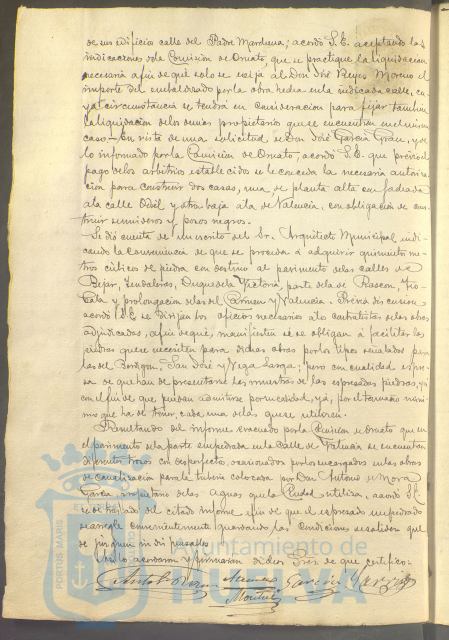 de sus edificios calle del Padre Marchena; acordó S.E. aceptando las
indicaciones de la Comisión de Ornato, que se practique la liquidacion
necesaria a fin de que solo se exija al Don José Reyes Moreno el
importe del embaldosado por la obra hecha en la indicada calle, cu-
ya circunstancia se tendrá en consideracion para fijar tambien
la liquidacion de los demas propietarios que se encuentren en el mismo
caso. En vista de una solicitud de Don José García Grau, y de
lo informado por la Comision de Ornato, acordó S.E. que previo el
pago de los arbitrios establecidos se le conceda la necesaria autoriza-
cion para construir dos casas, una de planta alta con fachada
a la calle y otra baja a la de Valencia, con obligacion de cons-
truir sumideros y pozos negros.
Se dió cuenta de un escrito del Sr. Arquitecto Municipal indi-
cando la conveniencia de que se proceda á adquirir quinientos me-
tros cúbicos de piedra con destino al pavimento de las calles de
Bejar, Duque de la Victoria, parte de la de Rascon,
y prolongacion de las del Carmen y Valencia. Prévia discusion
acordó S.E. se dirijan los oficios necesarios a los contratistas de las obras
adjudicadas, a fin de que manifiesten si se obligan á facilitar las
piedras que se necesiten para dichas obras por los tipos señalados para
las del San José y Vega Larga; pero con cualidad espre-
sa de que han de presentarse las muestras de las espresadas piedras, ya
con el fin de que puedan admitirse por su calidad, ya por el tamaño míni-
mo que ha de tener cada una de las que se utilicen.
Resultando del informe evacuado por la Comision de Ornato que en
el pavimento de la parte empedrada en la Calle de Valencia se encuentran
diferentes trozos con desperfectos, ocasionados por los encargados en las obras
de canalizacion para la tuberia colocada por Don Antonio de Mora
García, propietario de las aguas que la Ciudad utiliza, acordó S.E.
se dé traslado del citado informe a fin de que el espresado empedrado
se arregle convenientemente guardando las condiciones de solidez que
Así lo acordaron y firmarán dichos Sres. de que certifico.
García
PORTUS MARIS
Ayuntamiento de
HUELVA